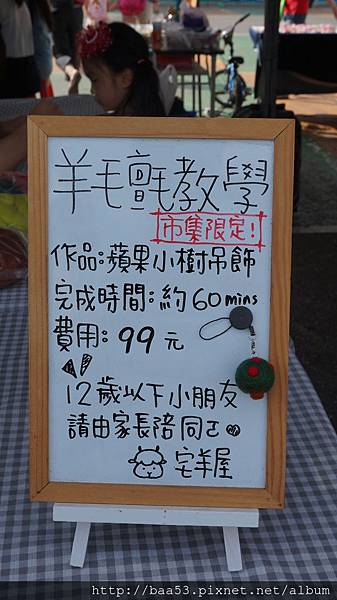 羊毛氈教學
市集限定!
作品:蘋果小樹吊飾
完成時間:約60mins
費用:99元
12歲以下小朋友
請由家長陪同
宅羊屋
http://baa53.pixnet.net/album